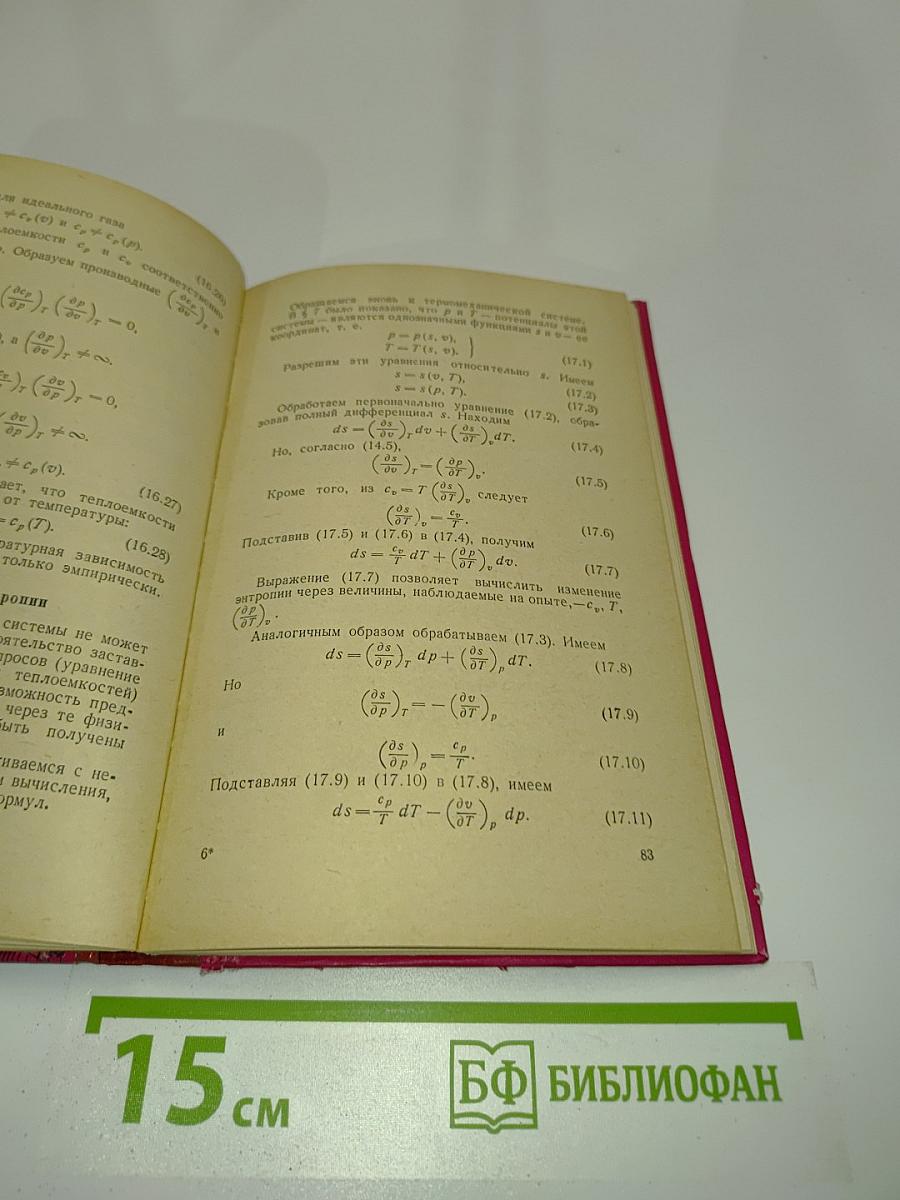 для идеального газа
≠ c_v (v) и c_p ≠ c_p (p). (16.26)
лоемкости c_p и c_v соответственно
. Образуем производные (∂c_p/∂v)_T и
(∂c_p/∂p)_T (∂p/∂v)_T = 0,
, а (∂p/∂v)_T ≠ ∞.
(∂v/∂p)_T = 0,
(∂v/∂p)_T ≠ ∞.
≠ c_p (v). (16.27)
ает, что теплоемкости
от температуры:
= c_p (T). (16.28)
ратурная зависимость
только эмпирически.
ропии
системы не может
оятельство застав-
просов (уравнение
теплоемкостей)
зможность пред-
через те физи-
быть получены
киваемся с не-
и вычисления,
ормул.
Обращаемся вновь к термомеханической системе.
В § 7 было показано, что p и T — потенциалы этой
системы — являются однозначными функциями s и v — ее
координат, т. е.
p = p (s, v),
T = T (s, v). } (17.1)
Разрешим эти уравнения относительно s. Имеем
s = s (v, T), (17.2)
s = s (p, T). (17.3)
Обработаем первоначально уравнение (17.2), обра-
зовав полный дифференциал s. Находим
ds = (∂s/∂v)_T dv + (∂s/∂T)_v dT. (17.4)
Но, согласно (14.5),
(∂s/∂v)_T = (∂p/∂T)_v. (17.5)
Кроме того, из c_v = T (∂s/∂T)_v следует
(∂s/∂T)_v = c_v/T. (17.6)
Подставив (17.5) и (17.6) в (17.4), получим
ds = c_v/T dT + (∂p/∂T)_v dv. (17.7)
Выражение (17.7) позволяет вычислить изменение
энтропии через величины, наблюдаемые на опыте,—c_v, T,
(∂p/∂T)_v.
Аналогичным образом обрабатываем (17.3). Имеем
ds = (∂s/∂p)_T dp + (∂s/∂T)_p dT. (17.8)
Но
(∂s/∂p)_T = − (∂v/∂T)_p (17.9)
и
(∂s/∂p)_p = c_p/T. (17.10)
Подставляя (17.9) и (17.10) в (17.8), имеем
ds = c_p/T dT − (∂v/∂T)_p dp. (17.11)
6* 83
15 см
БФ БИБЛИОФАН